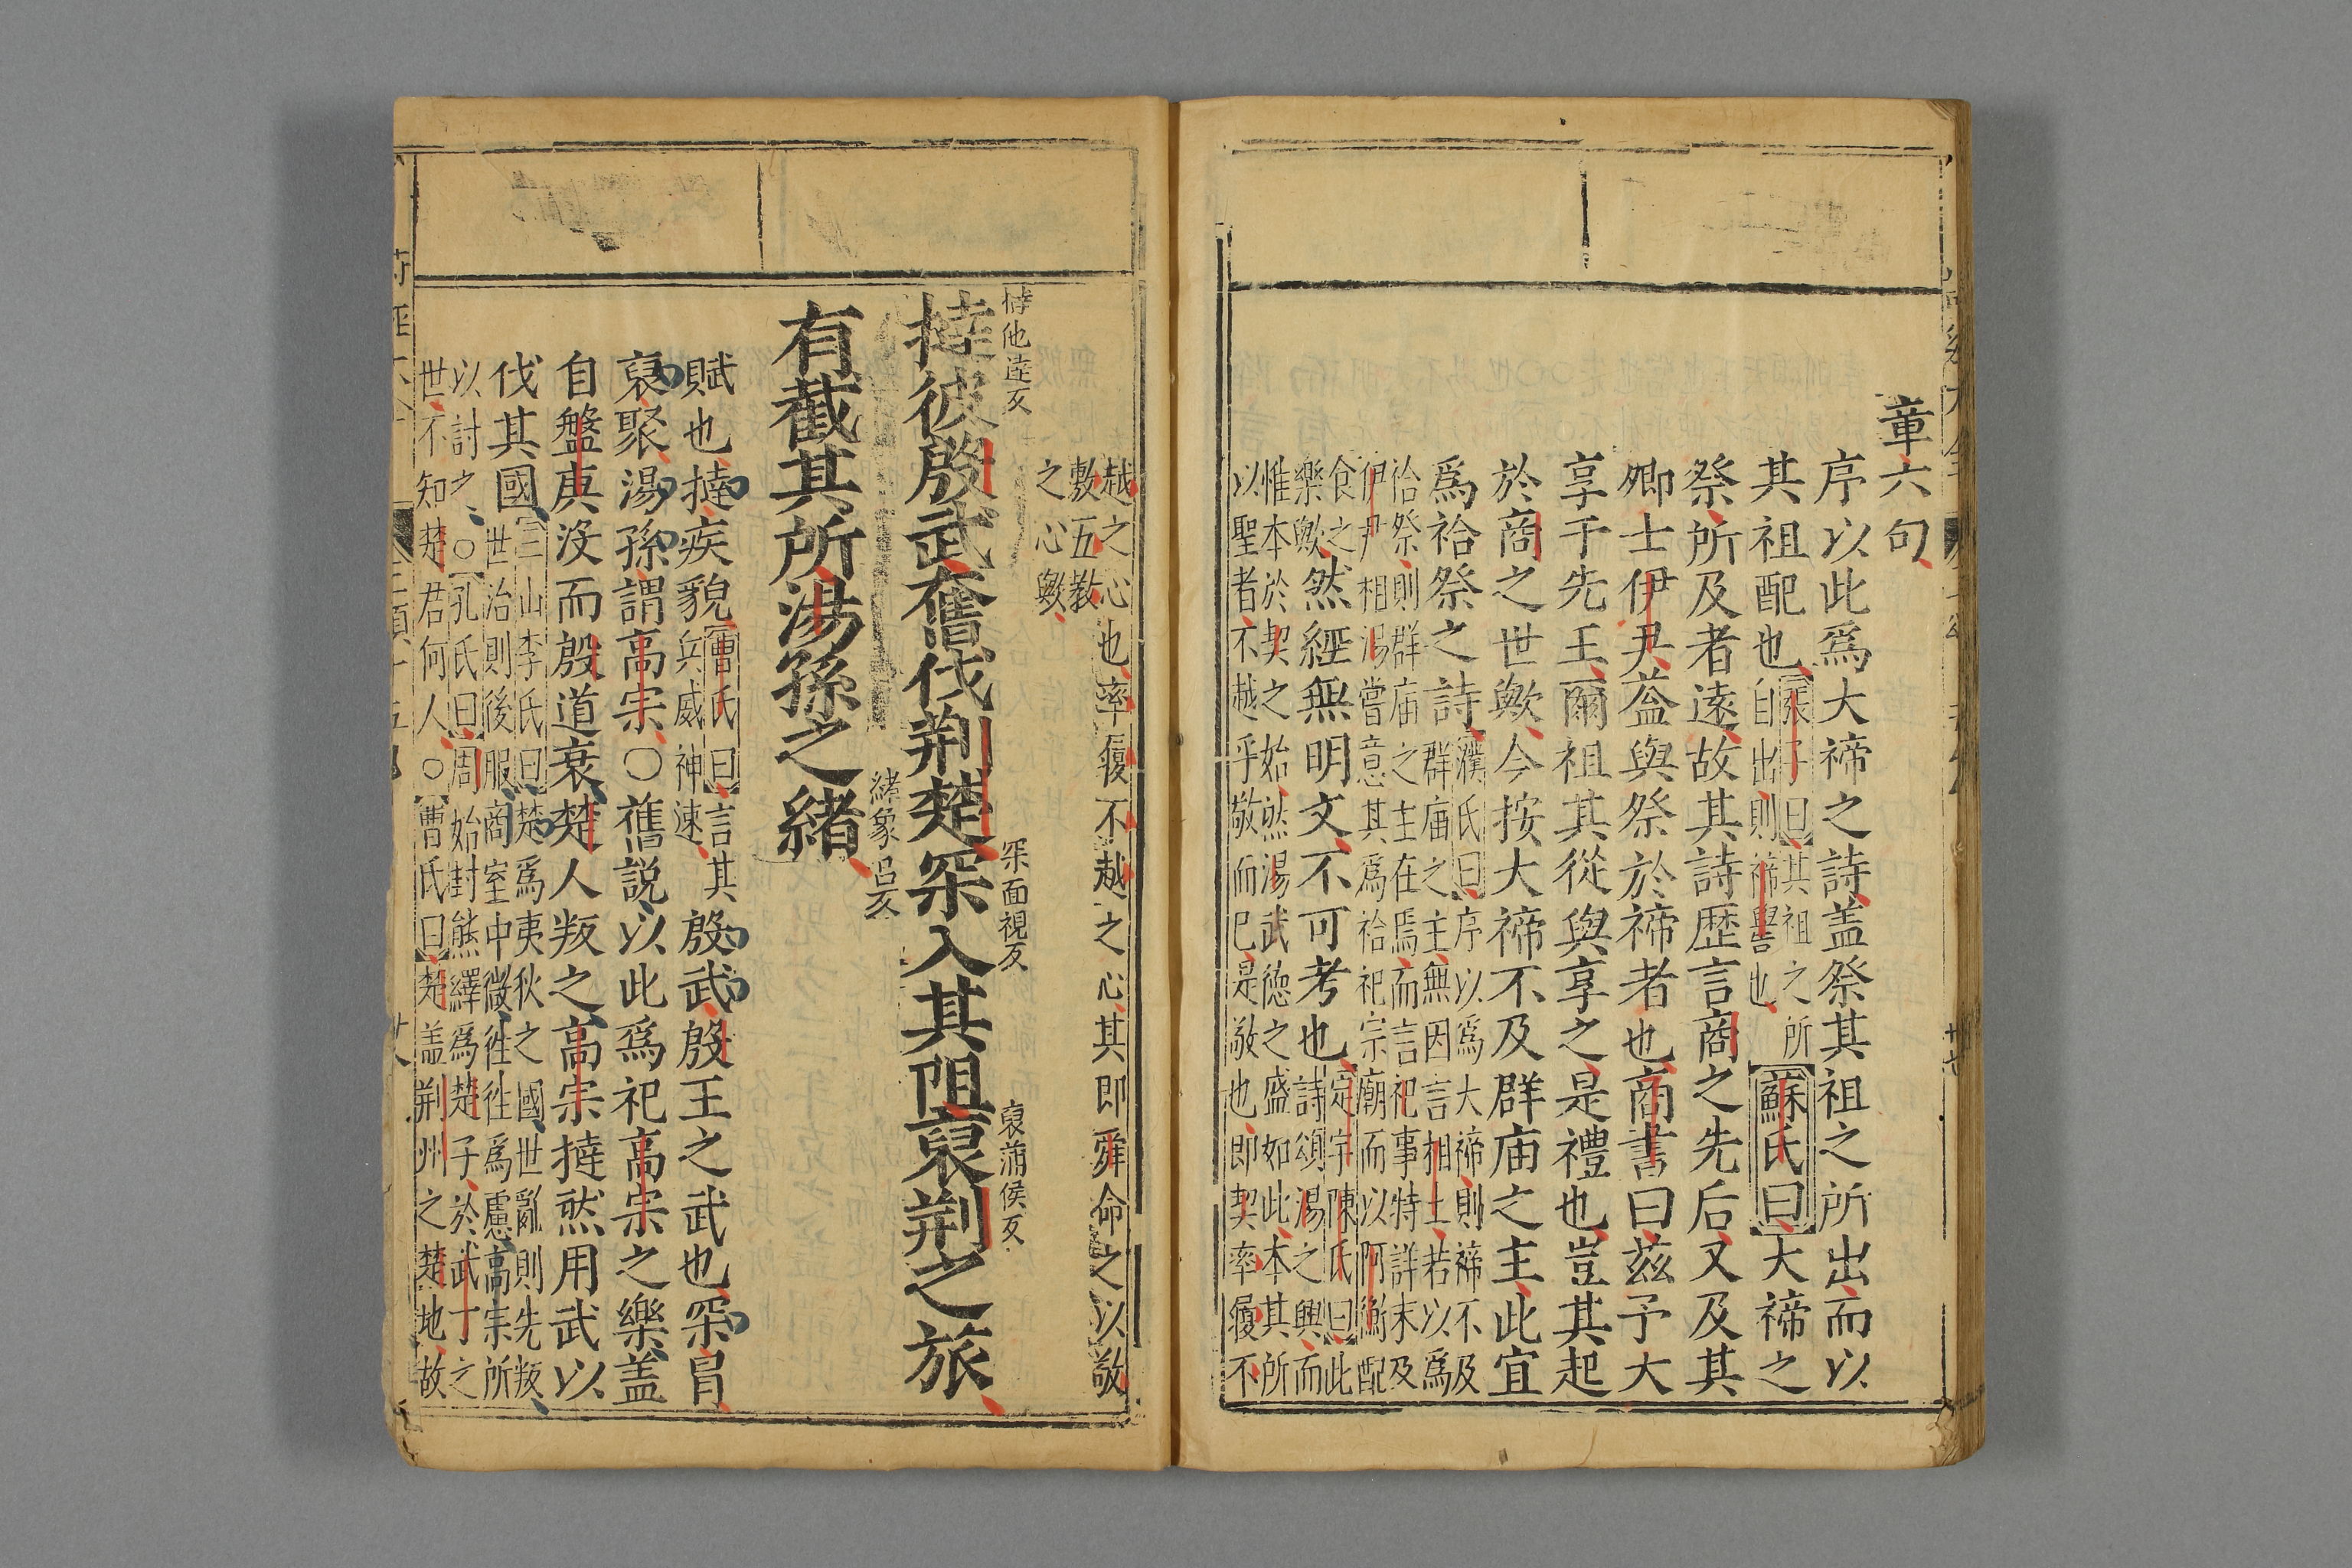 章六句
序以此爲大禘之詩盖祭其祖之所出而以
其祖配也
張子曰其祖之所
自出則禘嚳也
蘇氏曰大禘之
祭所及者遠故其詩歷言商之先后又及其
卿士伊尹葢與祭於禘者也商書曰茲予大
享于先王爾祖其從與享之是禮也豈其起
於商之世歟今按大禘不及群庙之主此宜
爲祫祭之詩
濮氏曰序以爲大禘則禘不及
群庙之主無因言相土若以爲
祫祭則群庙之主在焉而言祀事特詳末及
伊尹相湯當意其爲祫祀宗廟而以阿衡配
食之
樂歟
然經無明文不可考也
定宇陳氏曰此
詩頌湯之興而
惟本於契之始然湯武德之盛如此本其所
以聖者不越乎敬而已是敬也即契率履不
越之心也率履不越之心其即舜命之以敬
敷五教
之心歟
撻他達反
撻彼殷武奮伐荆楚罙入其阻裒荆之旅
罙面視反
裒蒲侯反
有截其所湯孫之緒
緒象呂反
賦也撻疾貌
曹氏曰言其
兵威神速
殷武殷王之武也罙冐
裒聚湯孫謂高宗○舊説以此爲祀高宗之樂盖
自盤庚没而殷道衰楚人叛之高宗撻然用武以
伐其國
三山李氏曰楚爲夷狄之國世亂則先叛
世治則後服商室中微徃徃爲慮高宗所
以討之○孔氏曰周始封熊繹爲楚子於武丁之
世不知楚君何人○曹氏曰楚盖荆州之楚地故